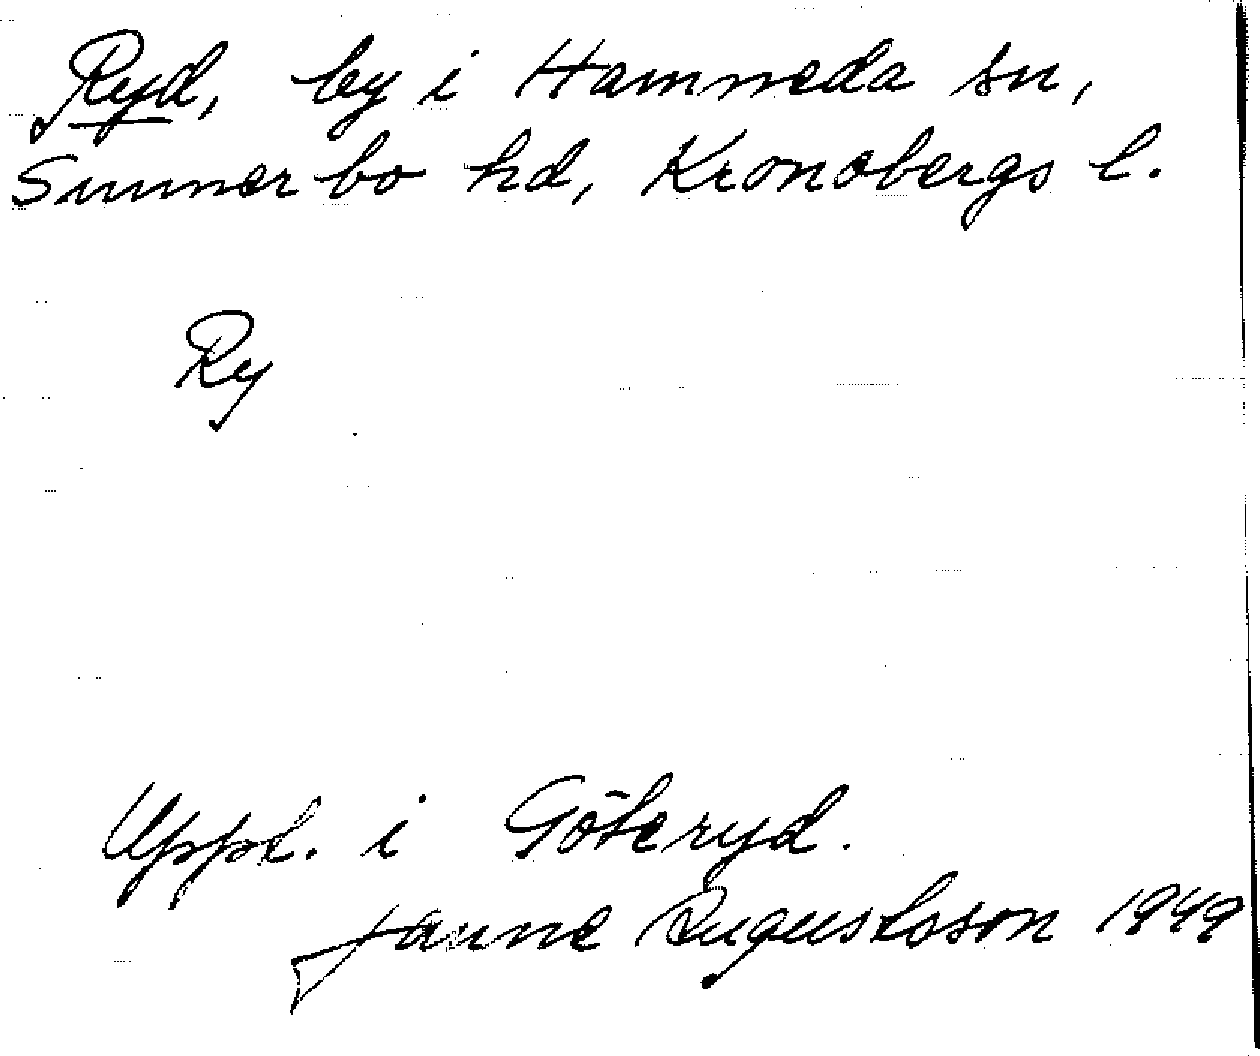 Ryd, by i Hamneda sn,
Sunnerbo hd, Kronobergs l.
Ry
Uppt. i Göteryd.
Janne Augustsson 1949